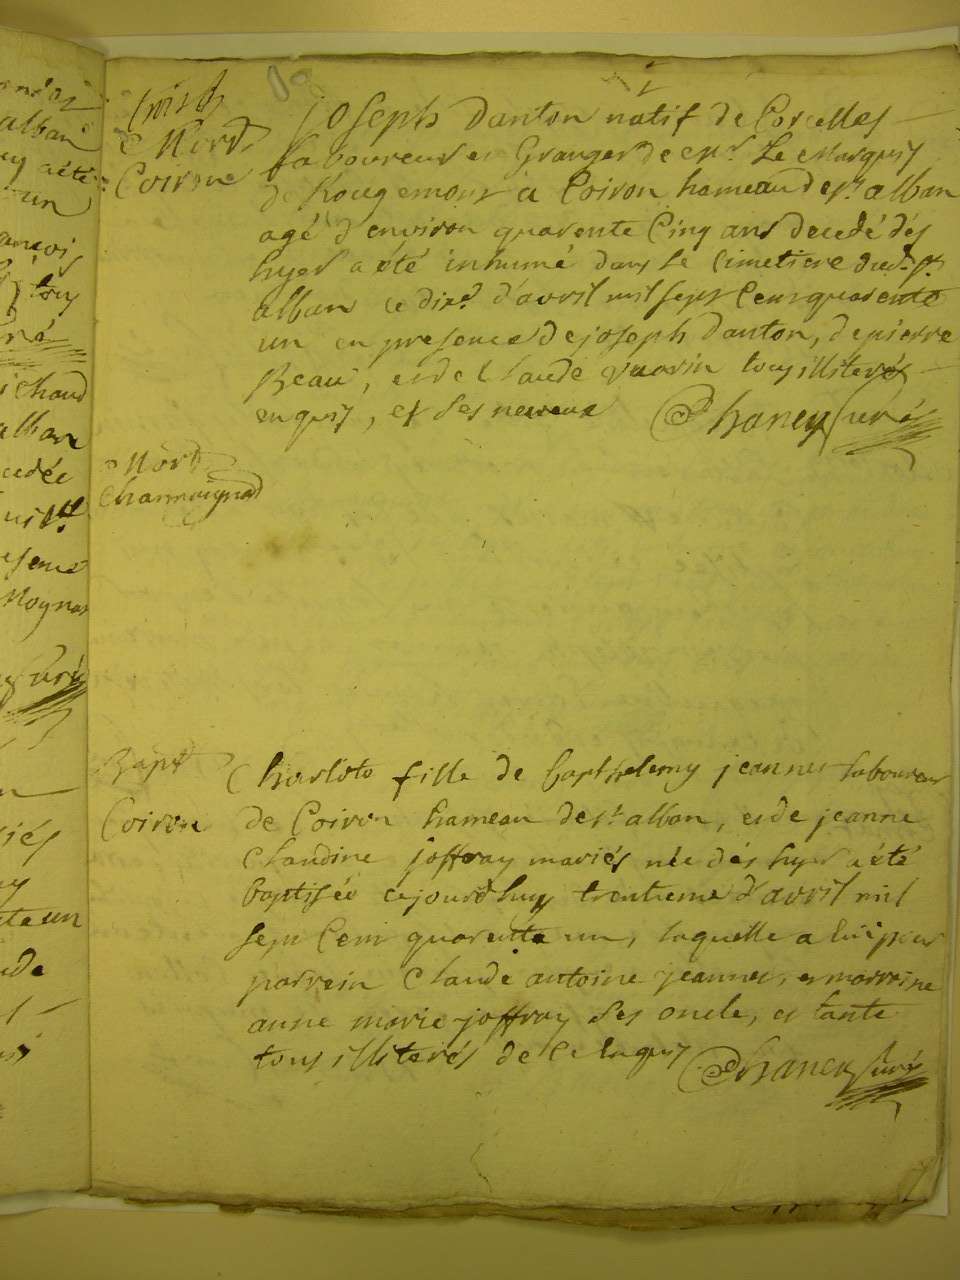 Mort
Coiron
joseph Danton natif de Corcelles
Laboureur et Granger de Mr. Le Marquis
de Rougemont a Coiron hameau de st. alban
agé d'environ quarente Cinq ans decedé dés
hyer a été inhumé dans le Cimetiere dud. st.
alban ce dix d'avril mil sept Cent quarente
un en presence de joseph Danton, de pierre
Beau, et de Claude vuarin tous illiterés
enquis, et ses neveux Chaney Curé
Mort
Charmaignad
Bapt
Coiron
Charlote fille de barthelemy jeannet laboureur
de Coiron hameau de st. alban, et de jeanne
Claudine joffray mariés née dés hyer a été
baptisée cejourd'huy trentieme d'avril mil
sept Cent quarente un, laquelle a eu pour
parrein Claude antoine jeannet, et marreine
anne marie joffray ses oncle, et tante
tous illiterés de ce enquis Chaney Curé